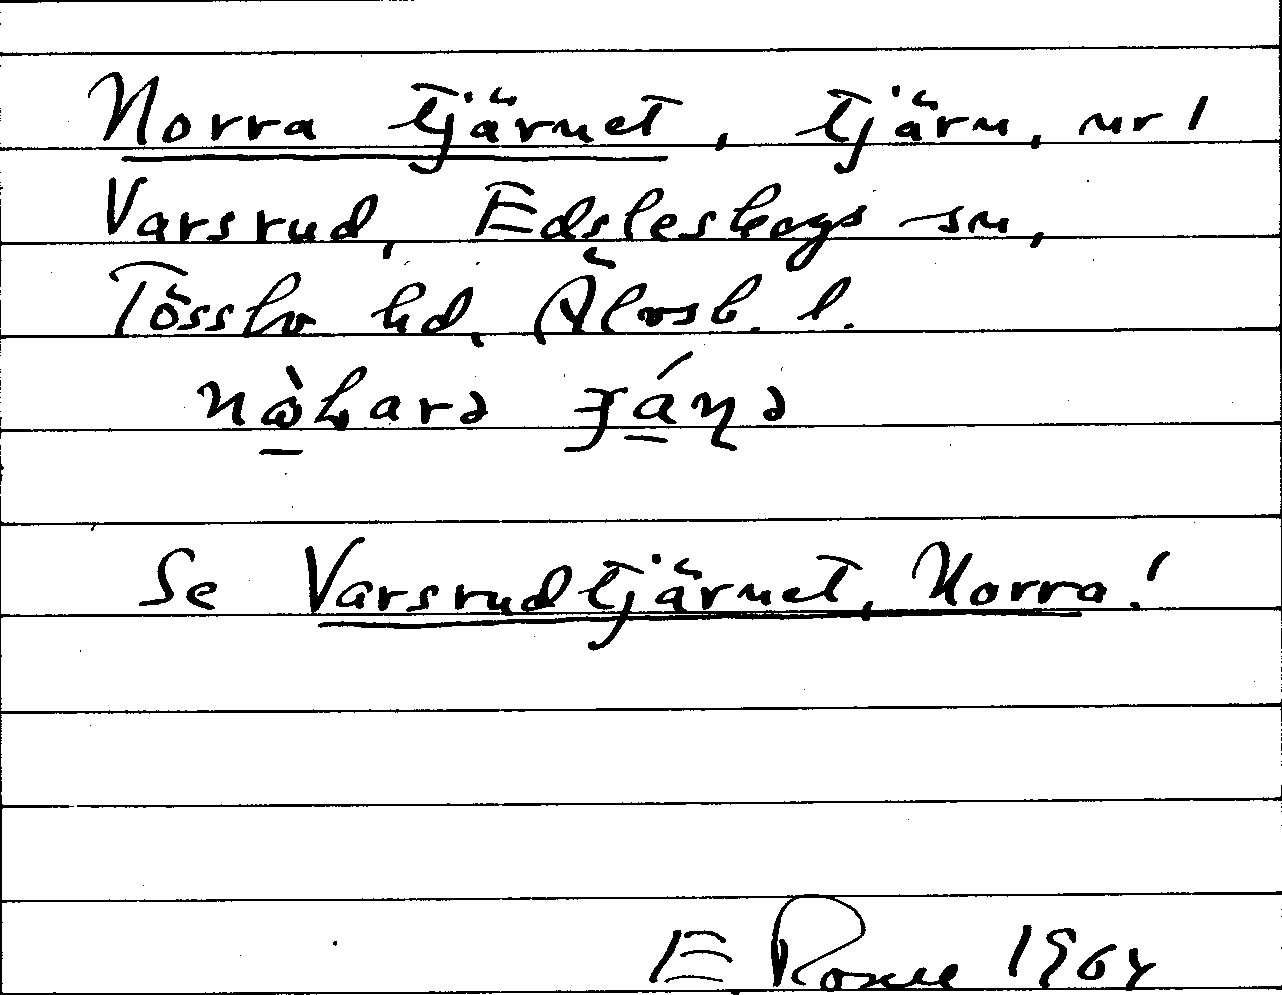 Norra tjärnet, tjärn, nr 1
Varsrud, Edsleskogs sn,
Tössbo hd, Älvsb. l.
Se Varsrudtjärnet, Norra!
E. 1964